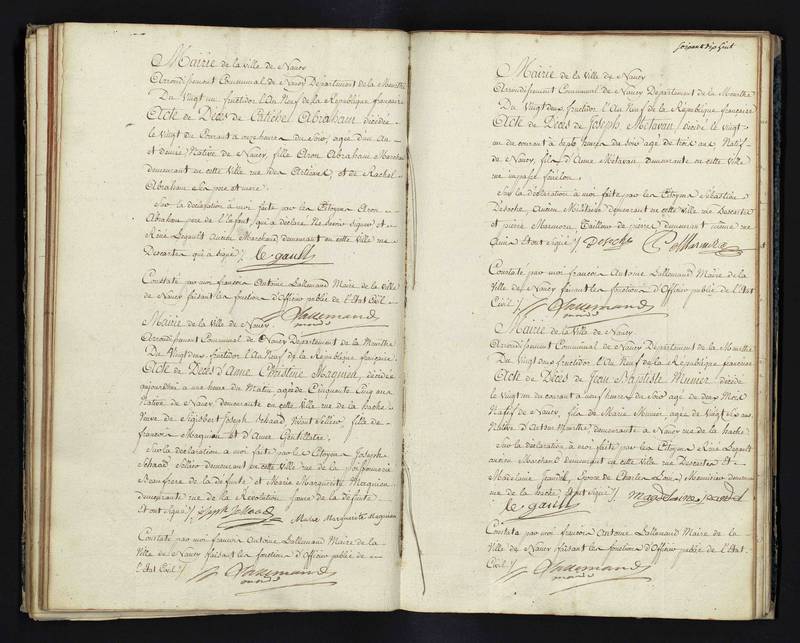 Mairie de la Ville de Nancy
Arrondissement Communal de Nancy Département de la Meurthe
Du Vingt un fructidor l'An Neuf de la République française
Acte de Décès de Abraham décédée
le Vingt du Courant à onze heures du Soir, agée d'un An
et demie, Native de Nancy, fille Aron Abraham Marchand
demeurant en cette Ville rue des Artisans, et de Rachel
Abraham ses pere et mere.
Sur la déclaration à moi faite par les Citoyens Aron
Abraham pere de l'Enfant, qui a déclaré Ne Savoir Signer et
Réné Legault Ancien Marchand demeurant en cette Ville rue
Descartes qui a Signé./. Le gault
Constaté par moi françois Antoine Lallemand Maire de la Ville
de Nancy faisant les fonctions d'Officier public de l'Etat Civil
Lallemand
Mairie de la Ville de Nancy
Arrondissement Communal de Nancy Département de la Meurthe
Du Vingt deux fructidor l'An Neuf de la République française
Acte de Décès d'Anne Christine Marquien, décédée
aujourd'hui a une heure du Matin agée de Cinquante Cinq ans
Native de Nancy, demeurante en cette Ville rue de la hache
Veuve de Sigisbert Joseph Vivant Sellier, fille de
françois Marquien et d'Anne
Sur la déclaration à moi faite par les Citoyens Joseph
Sellier demeurant en cette Ville rue de la poissonnerie
Beaufrere de la défunte et Marie Marguerite Marquien
demeurante rue de la Révolution Soeur de la défunte
Et ont Signé./. Joseph Marie Marguerite Marquien
Constaté par moi françois Antoine Lallemand Maire de la
Ville de Nancy faisant les fonctions d'Officier public de
l'Etat Civil./. Lallemand
Soixante dix Sept
Mairie de la Ville de Nancy
Arrondissement Communal de Nancy Département de la Meurthe
Du Vingt deux fructidor l'An Neuf de la République française
Acte de Décès de Joseph Metavan, décédé le Vingt
un du courant à Sept heures du Soir agé de trois ans Natif
de Nancy, fils d'Anne Metavan, demeurante en cette Ville
rue impasse
Sur la déclaration à moi faite par les Citoyens Sébastien
Ancien Militaire demeurant en cette Ville rue Descartes
et pierre Tailleur de pierre, demeurant même rue
Ont Signé./.
Constaté par moi françois Antoine Lallemand Maire de la
Ville de Nancy faisant les fonctions d'Officier public de l'Etat
Civil./. Lallemand
Mairie de la Ville de Nancy
Arrondissement Communal de Nancy Département de la Meurthe
Du Vingt deux fructidor l'An Neuf de la République française
Acte de Décès de Jean Baptiste Munier, décédé
le Vingt un du courant à neuf heures du Soir agé de deux Mois
Natif de Nancy, fils de Marie Munier agée de Vingt Six ans
Native d'Art sur Meurthe, demeurante à Nancy rue de la hache
Sur la déclaration à moi faite par les Citoyens Réné Legault
ancien Marchand demeurant en cette Ville rue Descartes et
Madelaine Epouse de Charles Louis Menuisier demeurant
rue de la hache Et ont Signé./.
Le gault
Constaté par moi françois Antoine Lallemand Maire de la
Ville de Nancy faisant les fonctions d'Officier public de l'Etat
Civil./. Lallemand